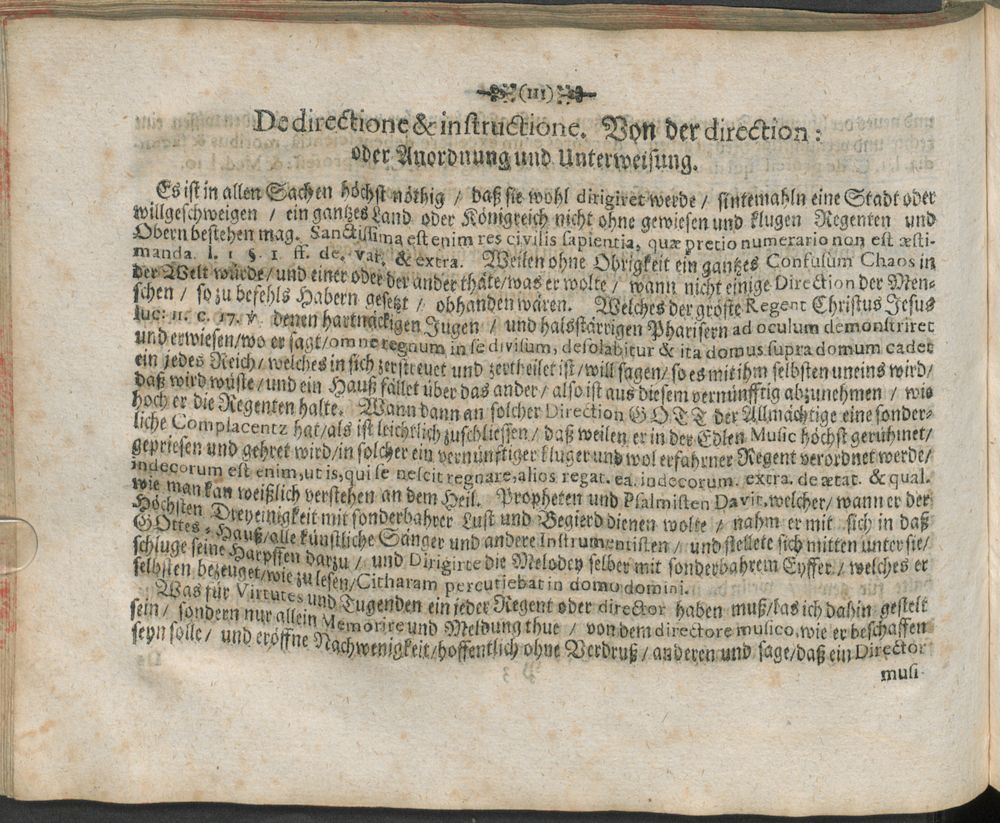 (111)
De directione & instructione. Von der direction:
oder Anordnung und Unterweisung.
Es ist in allen Sachen höchst nöthig / daß sie wohl dirigiret werde / sintemahln eine Stadt oder
willgeschweigen / ein gantzes Land oder Königreich nicht ohne gewiesen und klugen Regenten und
Obern bestehen mag. Sanctissima est enim res civilis sapientia, quæ pretio numerario non est æsti-
manda. l. 1 §. 1 ff. de. var. & extra. Weilen ohne Obrigkeit ein gantzes Confusum Chaos in
der Welt würde / und einer oder der ander thäte / was er wolte / wann nicht einige Direction der Men-
schen / so zu befehls Habern gesetzt / obhanden wären. Welches der gröste Regent Christus Jesus
luc: 11. c. 17. v. denen hartnäckigen Jugen / und halsstärrigen Pharisern ad oculum demonstriret
und erwiesen / wo er sagt / omne regnum in se divisum, desolabitur & ita domus supra domum cadet
ein jedes Reich / welches in sich zerstreuet und zertheilet ist / will sagen / so es mit ihm selbsten uneins wird /
daß wird wüste / und ein Hauß fället über das ander / also ist aus diesem vernünfftig abzunehmen / wie
hoch er die Regenten halte. Wann dann an solcher Direction GOTT der Allmächtige eine sonder-
liche Complacentz hat / als ist leichtlich zuschliessen / daß weilen er in der Edlen Music höchst gerühmet /
gepriesen und gehret wird / in solcher ein vernünftiger kluger und wol erfahrner Regent verordnet werde /
indecorum est enim, ut is, qui se nescit regnare, alios regat. ea. indecorum. extra. de ætat. & qual.
wie man kan weißlich verstehen an dem Heil. Propheten und Psalmisten Davit, welcher / wann er der
Höchsten Dreyeinigkeit mit sonderbahrer Lust und Begierd dienen wolte / nahm er mit sich in daß
GOttes-Hauß / alle künstliche Sänger und andere Instrumentisten / und stellete sich mitten unter sie /
schluge seine Harpffen darzu / und Dirigirte die Melodey selber mit sonderbahrem Eyffer / welches er
selbsten bezeuget / wie zu lesen / Citharam percutiebat in domo domini.
Was für Virtutes und Tugenden ein jeder Regent oder director haben muß / las ich dahin gestelt
sein / sondern nur allein Memorire und Meldung thue / von dem directore musico, wie er beschaffen
seyn solle / und eröffne Nachwenigkeit / hoffentlich ohne Verdruß / anderen und sage / daß ein Director
musi-